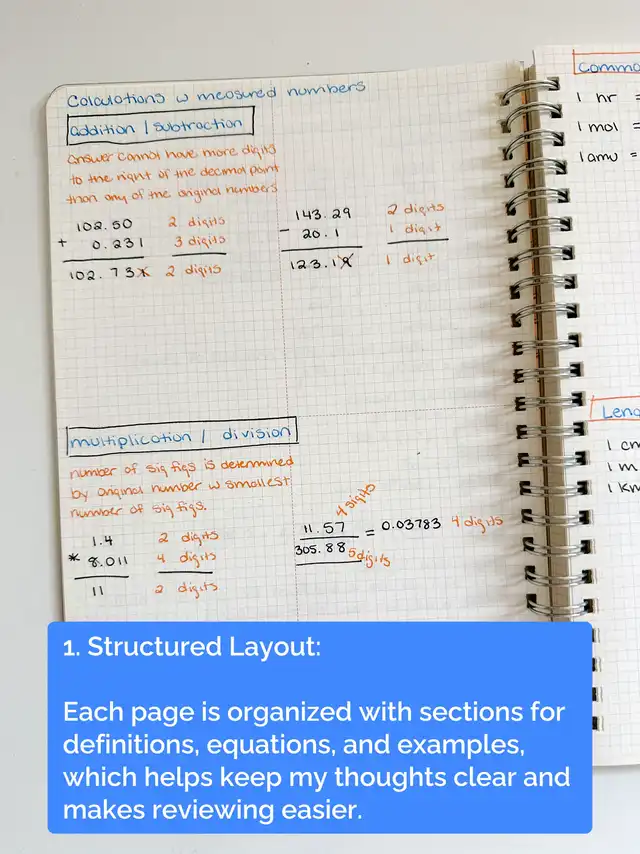 Calculations w measured numbers
addition / subtraction
answer cannot have more digits
to the right of the decimal point
than any of the original numbers
102.50 2 digits
+ 0.231 3 digits
102.731 2 digits
143.29 2 digits
- 20.1 1 digit
123.19 1 digit
multiplication / division
number of sig figs is determined
by original number w smallest
number of sig figs.
1.4 2 digits
* 8.011 4 digits
11 2 digits
11.57 4 digits
= 0.03783 4 digits
305.88 5 digits
Commo
1 hr =
1 mol =
1 amu =
Leng
1 cm
1 m
1 km
1. Structured Layout:
Each page is organized with sections for
definitions, equations, and examples,
which helps keep my thoughts clear and
makes reviewing easier.